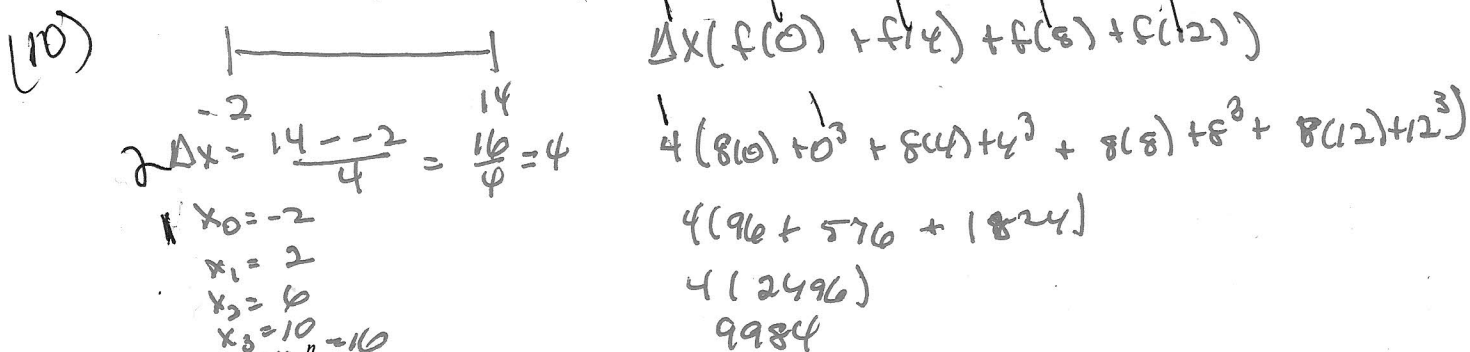 (10)
-2 14
2 Δx = 14 - -2 / 4 = 16/4 = 4
1 x₀ = -2
x₁ = 2
x₂ = 6
x₃ = 10
Δx(f(0) + f(4) + f(8) + f(12))
4(8(0) + 0³ + 8(4) + 4³ + 8(8) + 8³ + 8(12) + 12³)
4(96 + 576 + 1824)
4(2496)
9984